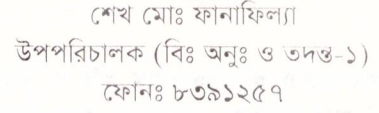 শেখ মোঃ ফানাফিল্যা
উপপরিচালক (বিঃ অনুঃ ও তদন্ত-১)
ফোনঃ ৮৩৯১২৫৭